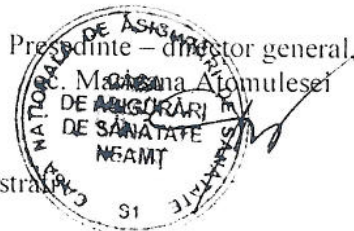 Președinte – director general,
c. Mariana Atomulesei
CASA NAȚIONALĂ DE ASIGURĂRI DE SĂNĂTATE
CASA
DE ASIGURĂRI
DE SĂNĂTATE
NEAMȚ
S1